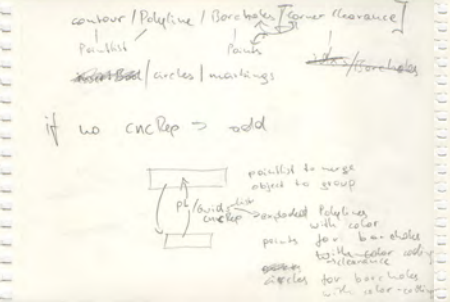 contour / Polyline / Boreholes [corner clearance]
Pointlist Points
/ circles / markings /Boreholes
if no cncRep => add
pointlist to merge
object to group
Pt / Guids list
cncRep exploded Polylines
with color
points for boreholes
with color coding
clearance
circles for boreholes
with color-coding